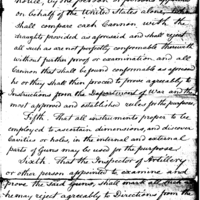 on behalf of the United States alone,
shall compare each Cannon with the
draughts provided as aforesaid and shall reject
all such as are not perfectly conformable therewith
without further proof or examination, and all
Cannon that shall be found conformable as aforesaid
he or they shall then proceed to prove agreeably to
Instructions from the Department of War and the
most approved and established rules for the purpose.
Fifth. That all instruments proper to be
employed to ascertain dimensions, and discover
cavities or holes in the internal and external
parts of Guns may be used for the purpose
Sixth. That the Inspector of Artillery
or other person appointed to examine and
prove the said Guns, shall mark all such as
he may reject agreeably to Directions from the